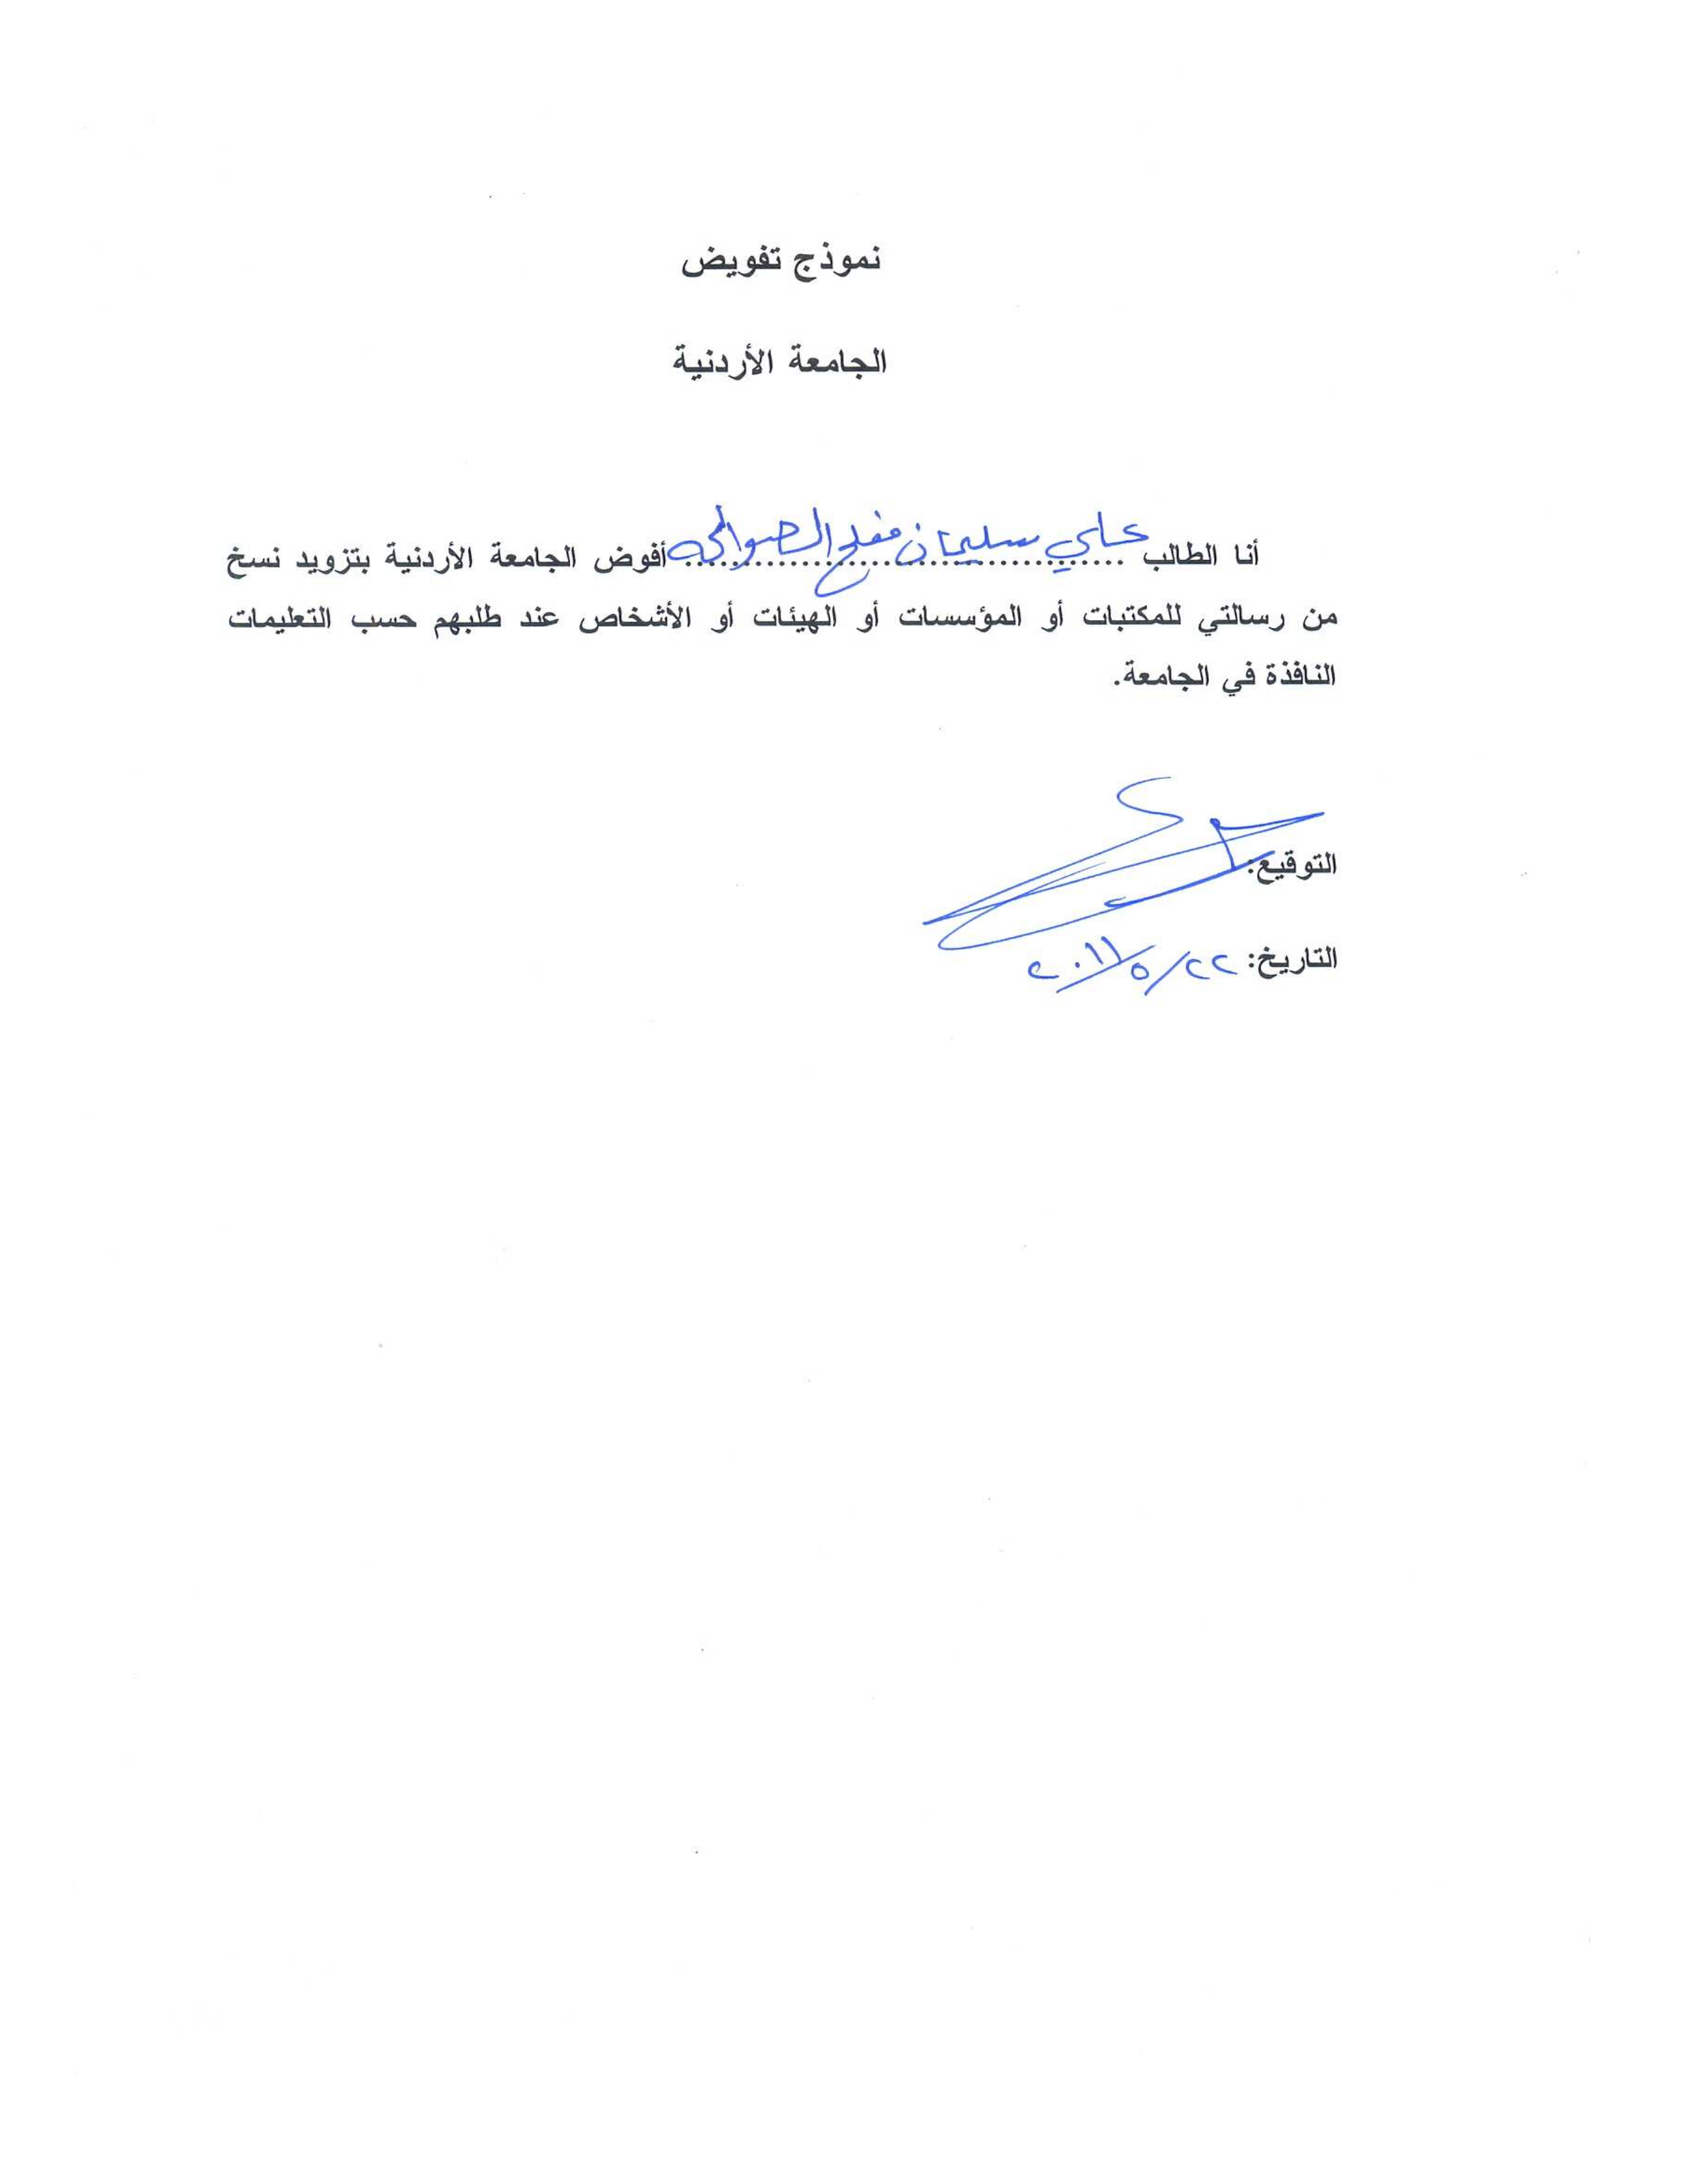 نموذج تفويض
الجامعة الأردنية
أنا الطالب علي سليمان مفلح الصوالحه أفوض الجامعة الأردنية بتزويد نسخ
من رسالتي للمكتبات أو المؤسسات أو الهيئات أو الأشخاص عند طلبهم حسب التعليمات
النافذة في الجامعة.
التوقيع:
التاريخ: ٢٢/٥/٢٠١١